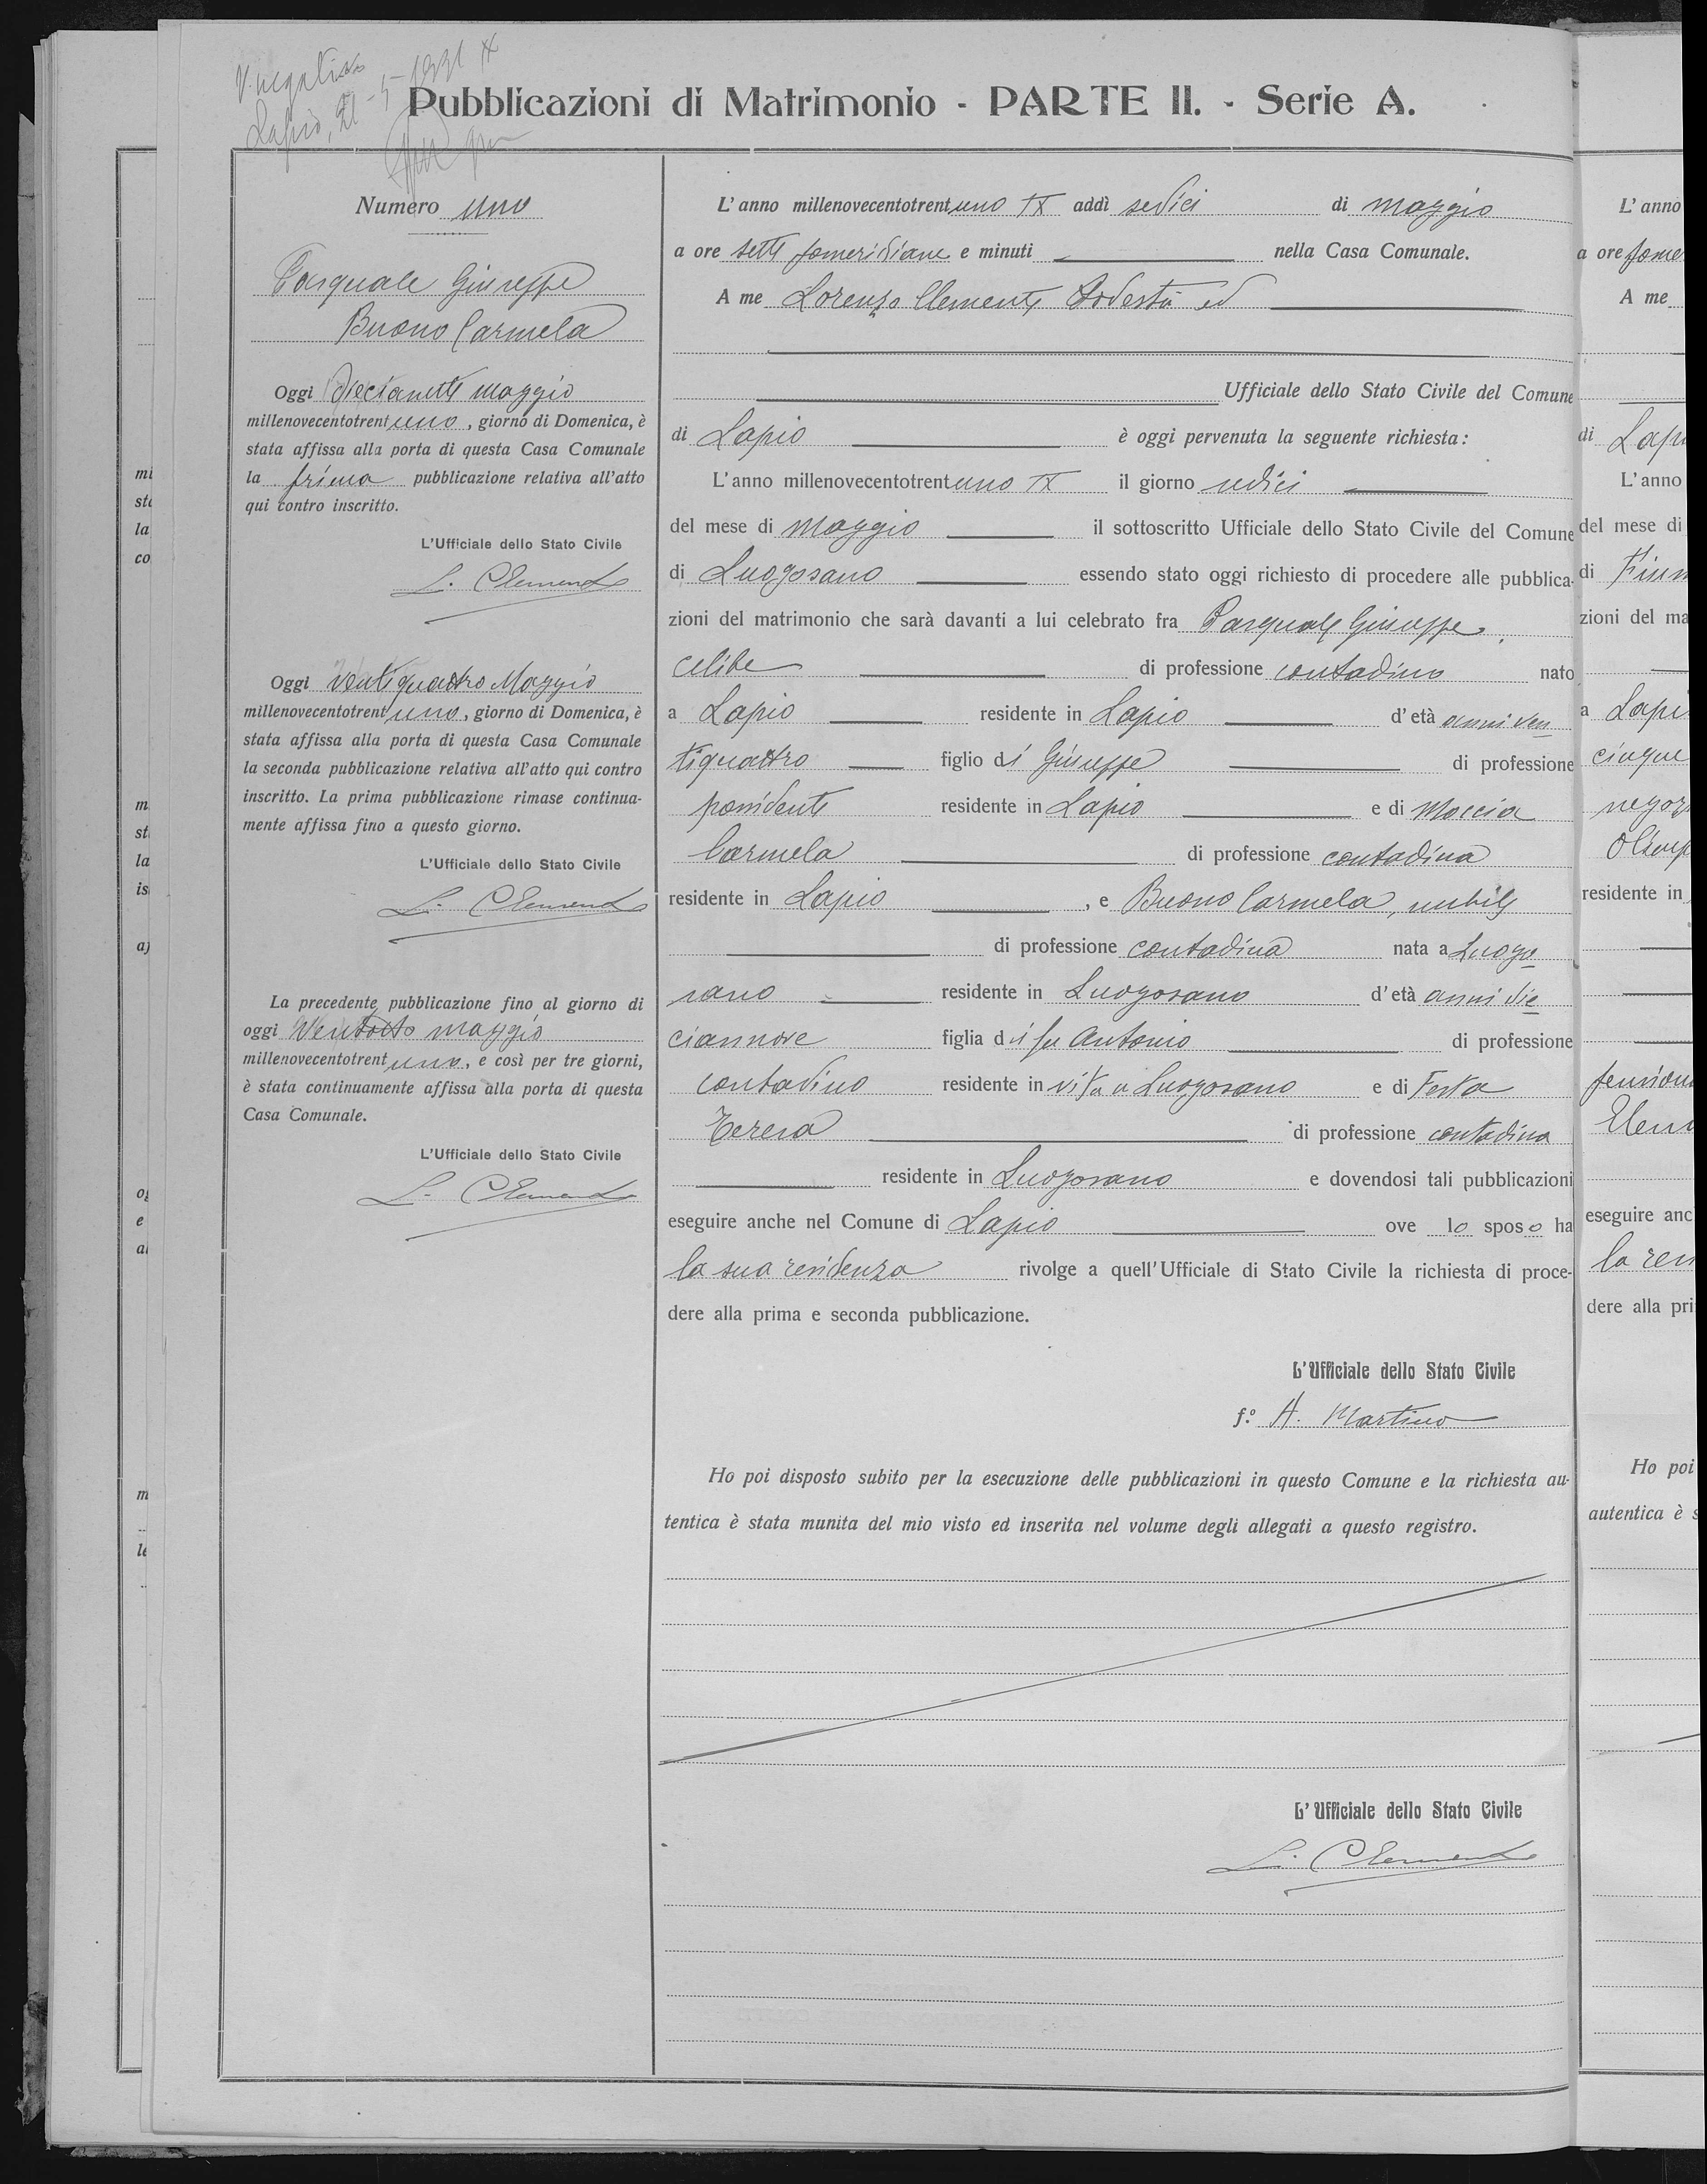 Lapio, 21-5-1931
Pubblicazioni di Matrimonio - PARTE II. - Serie A.
Numero uno
Pasquale Giuseppe
Buono Carmela
Oggi diecianette maggio
millenovecentotrentuno, giorno di Domenica, è
stata affissa alla porta di questa Casa Comunale
la prima pubblicazione relativa all'atto
qui contro inscritto.
L'Ufficiale dello Stato Civile
L. Clemente
Oggi ventiquattro Maggio
millenovecentotrentuno, giorno di Domenica, è
stata affissa alla porta di questa Casa Comunale
la seconda pubblicazione relativa all'atto qui contro
inscritto. La prima pubblicazione rimase continua-
mente affissa fino a questo giorno.
L'Ufficiale dello Stato Civile
L. Clemente
La precedente pubblicazione fino al giorno di
oggi Ventotto maggio
millenovecentotrentuno, e così per tre giorni,
è stata continuamente affissa alla porta di questa
Casa Comunale.
L'Ufficiale dello Stato Civile
L. Clemente
L'anno millenovecentotrentuno IX addì sedici di maggio
a ore sette pomeridiane e minuti nella Casa Comunale.
A me Lorenzo Clemente Podestà ed
Ufficiale dello Stato Civile del Comune
di Lapio è oggi pervenuta la seguente richiesta:
L'anno millenovecentotrentuno IX il giorno sedici
del mese di maggio il sottoscritto Ufficiale dello Stato Civile del Comune
di Luogosano essendo stato oggi richiesto di procedere alle pubblica-
zioni del matrimonio che sarà davanti a lui celebrato fra Pasquale Giuseppe,
celibe di professione contadino nato
a Lapio residente in Lapio d'età anni ven
tiquattro figlio di Giuseppe di professione
possidente residente in Lapio e di Moccia
Carmela di professione contadina
residente in Lapio, e Buono Carmela, nubile
di professione contadina nata a Luogo
sano residente in Luogosano d'età anni die
ciannove figlia di fu Antonio di professione
contadino residente in vita a Luogosano e di Festa
Teresa di professione contadina
residente in Luogosano e dovendosi tali pubblicazioni
eseguire anche nel Comune di Lapio ove lo sposo ha
la sua residenza rivolge a quell'Ufficiale di Stato Civile la richiesta di proce-
dere alla prima e seconda pubblicazione.
L'Ufficiale dello Stato Civile
f.º A. Martino
Ho poi disposto subito per la esecuzione delle pubblicazioni in questo Comune e la richiesta au-
tentica è stata munita del mio visto ed inserita nel volume degli allegati a questo registro.
L'Ufficiale dello Stato Civile
L. Clemente
L'anno
a ore pome
A me
di Lapi
L'anno
del mese di
di
zioni del ma
a Lapi
cinque
negoz
Olimp
residente in
pension
Elena
eseguire anc
la resi
dere alla pri
Ho poi
autentica è s